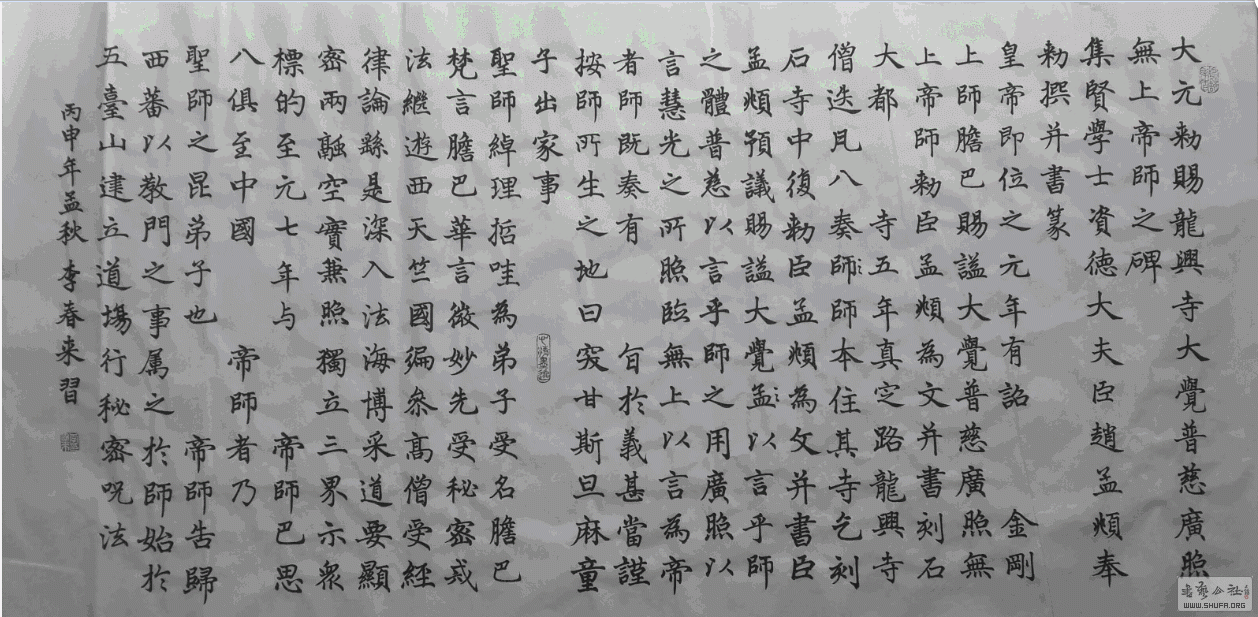 大元勑賜龍興寺大覺普慈廣照
無上帝師之碑
集賢學士資德大夫臣趙孟頫奉
勑撰并書篆
皇帝即位之元年有詔 金剛
上師膽巴賜諡大覺普慈廣照無
上帝師勑臣孟頫為文并書刻石
大都 寺五年真定路龍興寺
僧迭凡八奏師:師本住其寺乞刻
石寺中復勑臣孟頫為文并書臣
孟頫預議賜諡大覺孟:以言乎師
之體普慈以言乎師之用廣照以
言慧光之所照臨無上以言為帝
者師既奏有 旨於義甚當謹
按師所生之地曰突甘斯旦麻童
子出家事
聖師綽理括哇為弟子受名膽巴
梵言膽巴華言微妙先受秘密戒
法繼遊西天竺國徧叅高僧受經
律論繇是深入法海博采道要顯
密兩融空實兼照獨立三界示衆
標的至元七年与 帝師巴思
八俱至中國 帝師者乃
聖師之昆弟子也 帝師告歸
西蕃以教門之事属之於師始於
五臺山建立道場行秘密呪法
丙申年孟秋 李春来習
书法公社
WWW.SHUFA.ORG